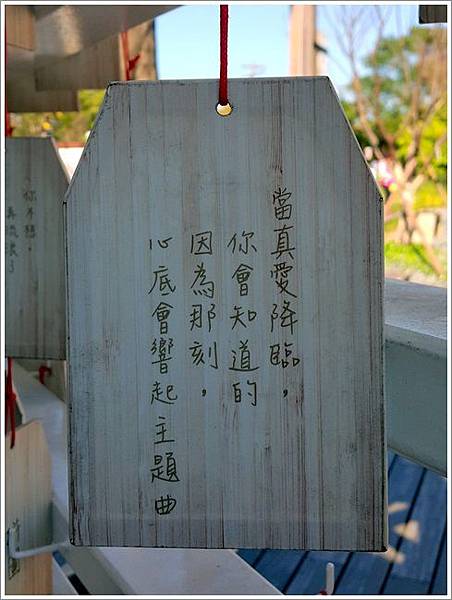 當真愛降臨，
你會知道的
因為那刻，
心底會響起主題曲
你不想，